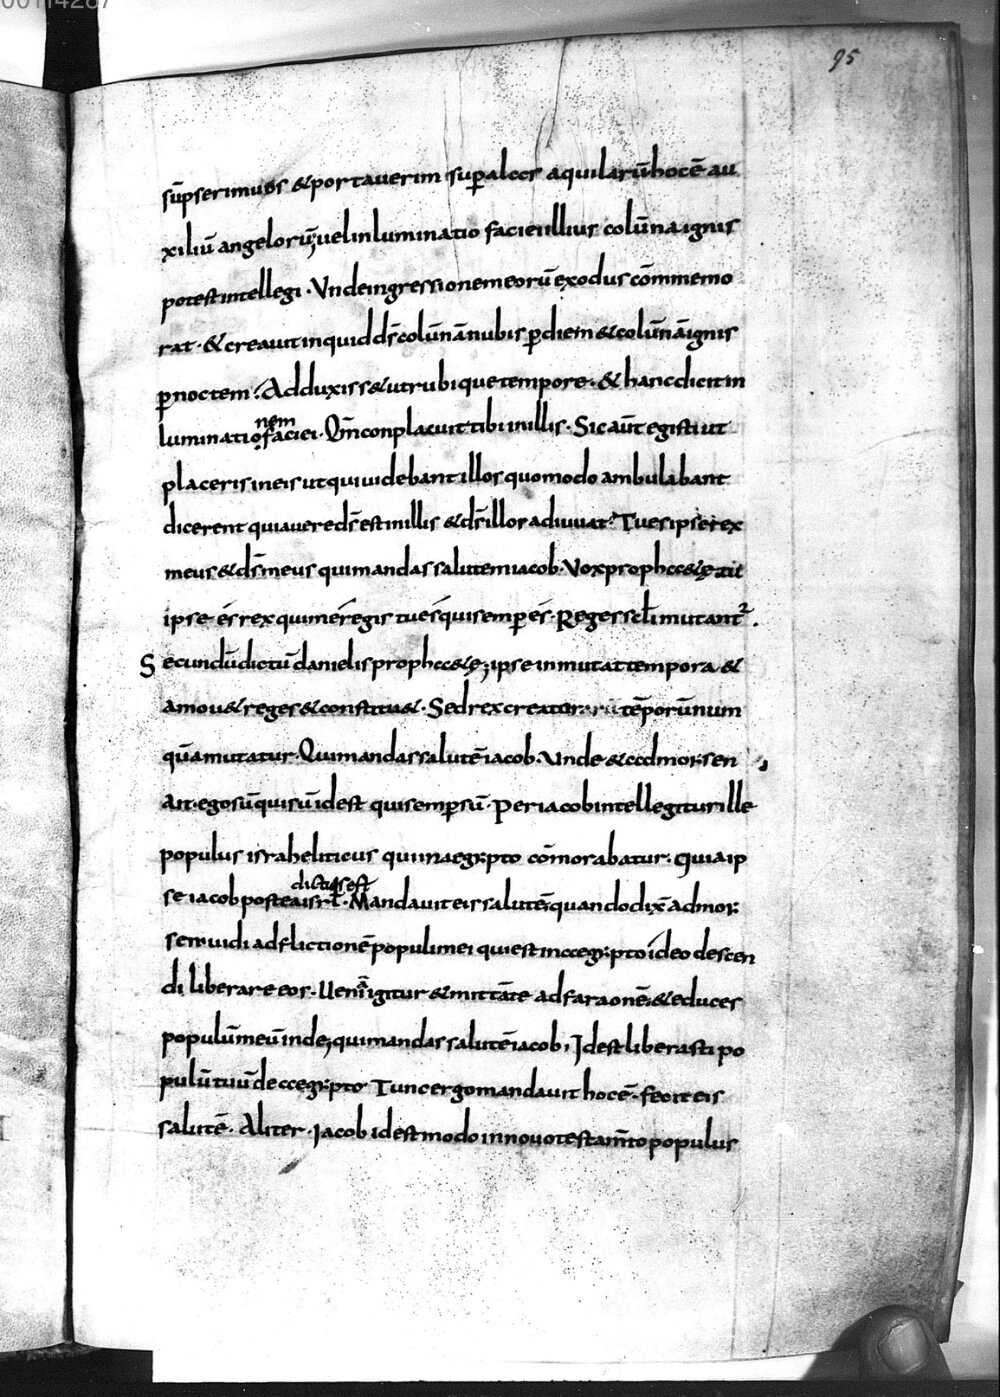 00114287
95
sūpserim uos & portauerim sup alas aquilarū hoc ē au
xiliū angelorū; uel inluminatio faciei illius colūna ignis
potest intellegi · Unde ingressionem eorū exodus cōmemo
rat · & creauit inquid d̄s colūnā nubis p diem & colūnā ignis
p noctem · Adduxiss& utrubique tempore · & hanc dicit in
luminatio nem faciei · Qm̄ conplacuit tibi in illis · Sic aūt egisti ut
placeris in eis ut qui uidebant illos quomodo ambulabant
dicerent quia uere d̄s est in illis & d̄s illos adiuuat · Tu es ipse rex
meus & d̄s meus qui mandas salutem iacob · Vox proph&ę tu
ipse ēs rex qui me regis tu es qui semp ēs · Reges sc̄li mutant²·
Secundū dictū danielis proph&ę; ipse inmutat tempora &
amou& reges & constitu& · Sed rex creator tēporū num
quā mutatur · Qui mandas salutē iacob · Unde & ad mosen
ait · ego sū qui sū id est qui semp sū · Per iacob intellegitur ille
populus israheliticus qui in aegypto cōmorabatur · quia ip
se iacob postea isrl̄ dictus est · Mandauit eis salutē quando dix̄ ad mo
sen uidi adflictionē populi mei qui est in aegypto ideo descen
di liberare eos · Ueni igitur & mittā te ad faraonē & educes
populū meū inde; qui mandas salutē iacob, Id est liberasti po
pulū tuū de aegypto Tunc ergo mandauit hoc ē · fecit eis
salutē · Aliter · Iacob id est modo in nouo testam̄to populus